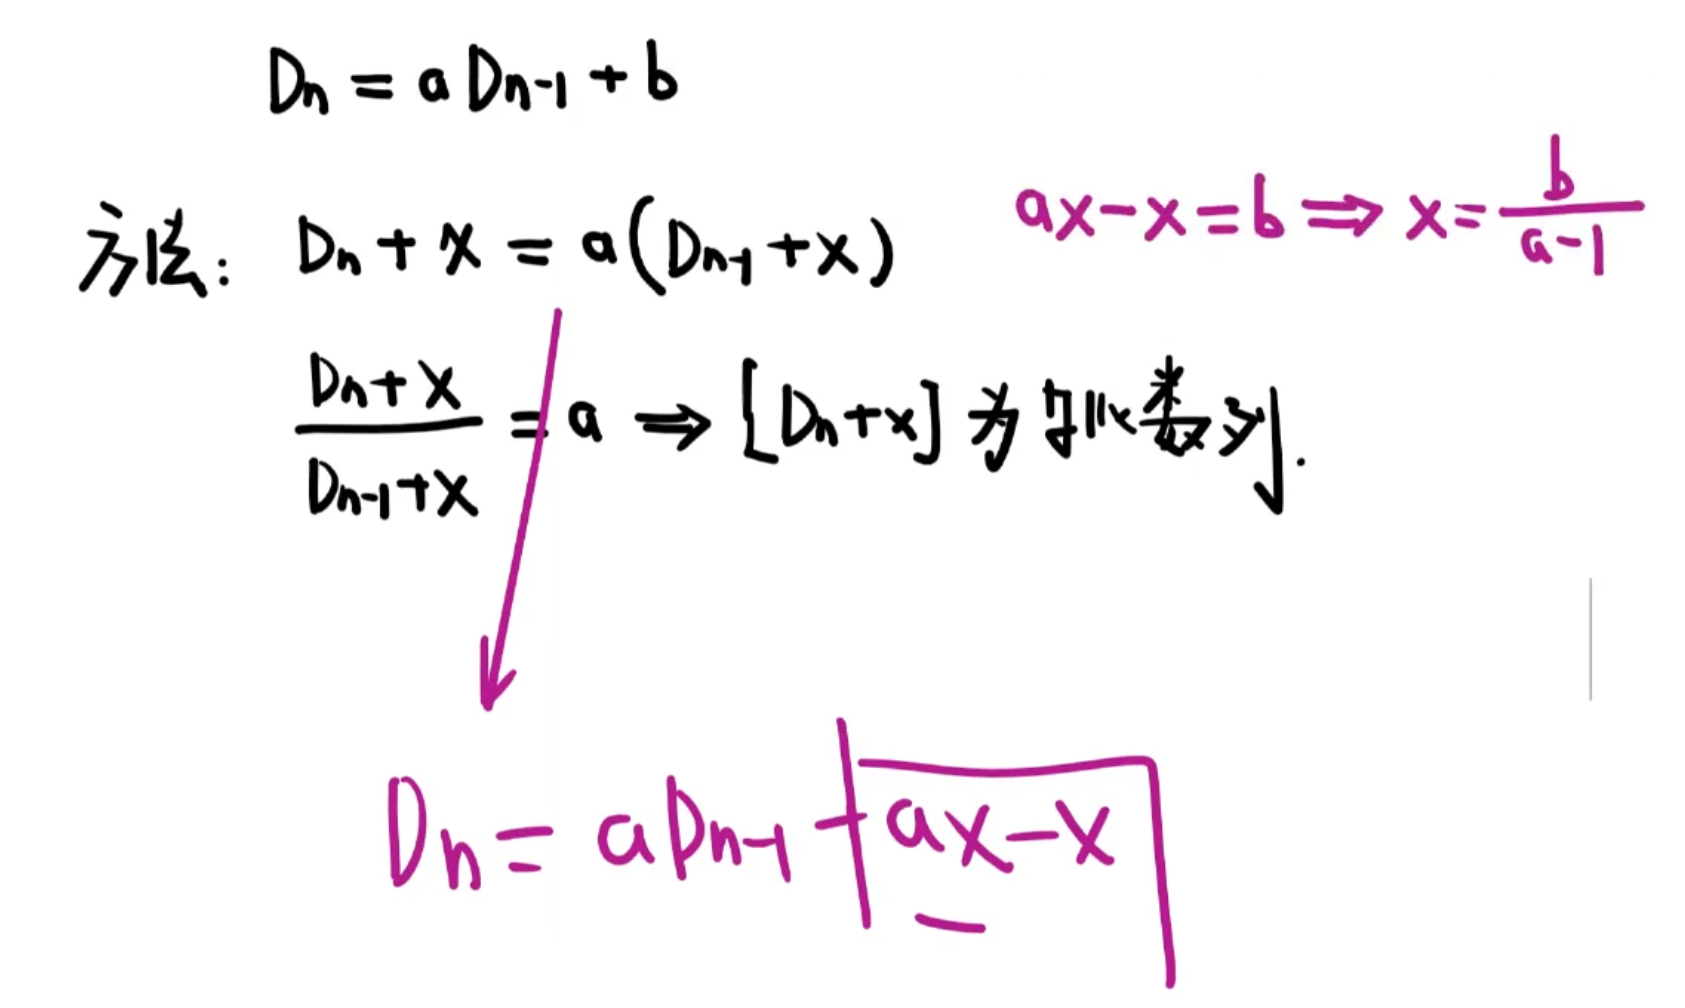 Dn = aDn-1 + b
方法: Dn + x = a(Dn-1 + x)
ax - x = b ⇒ x = b/(a-1)
(Dn + x)/(Dn-1 + x) = a ⇒ [Dn + x] 为 数列.
Dn = aDn-1 + ax - x